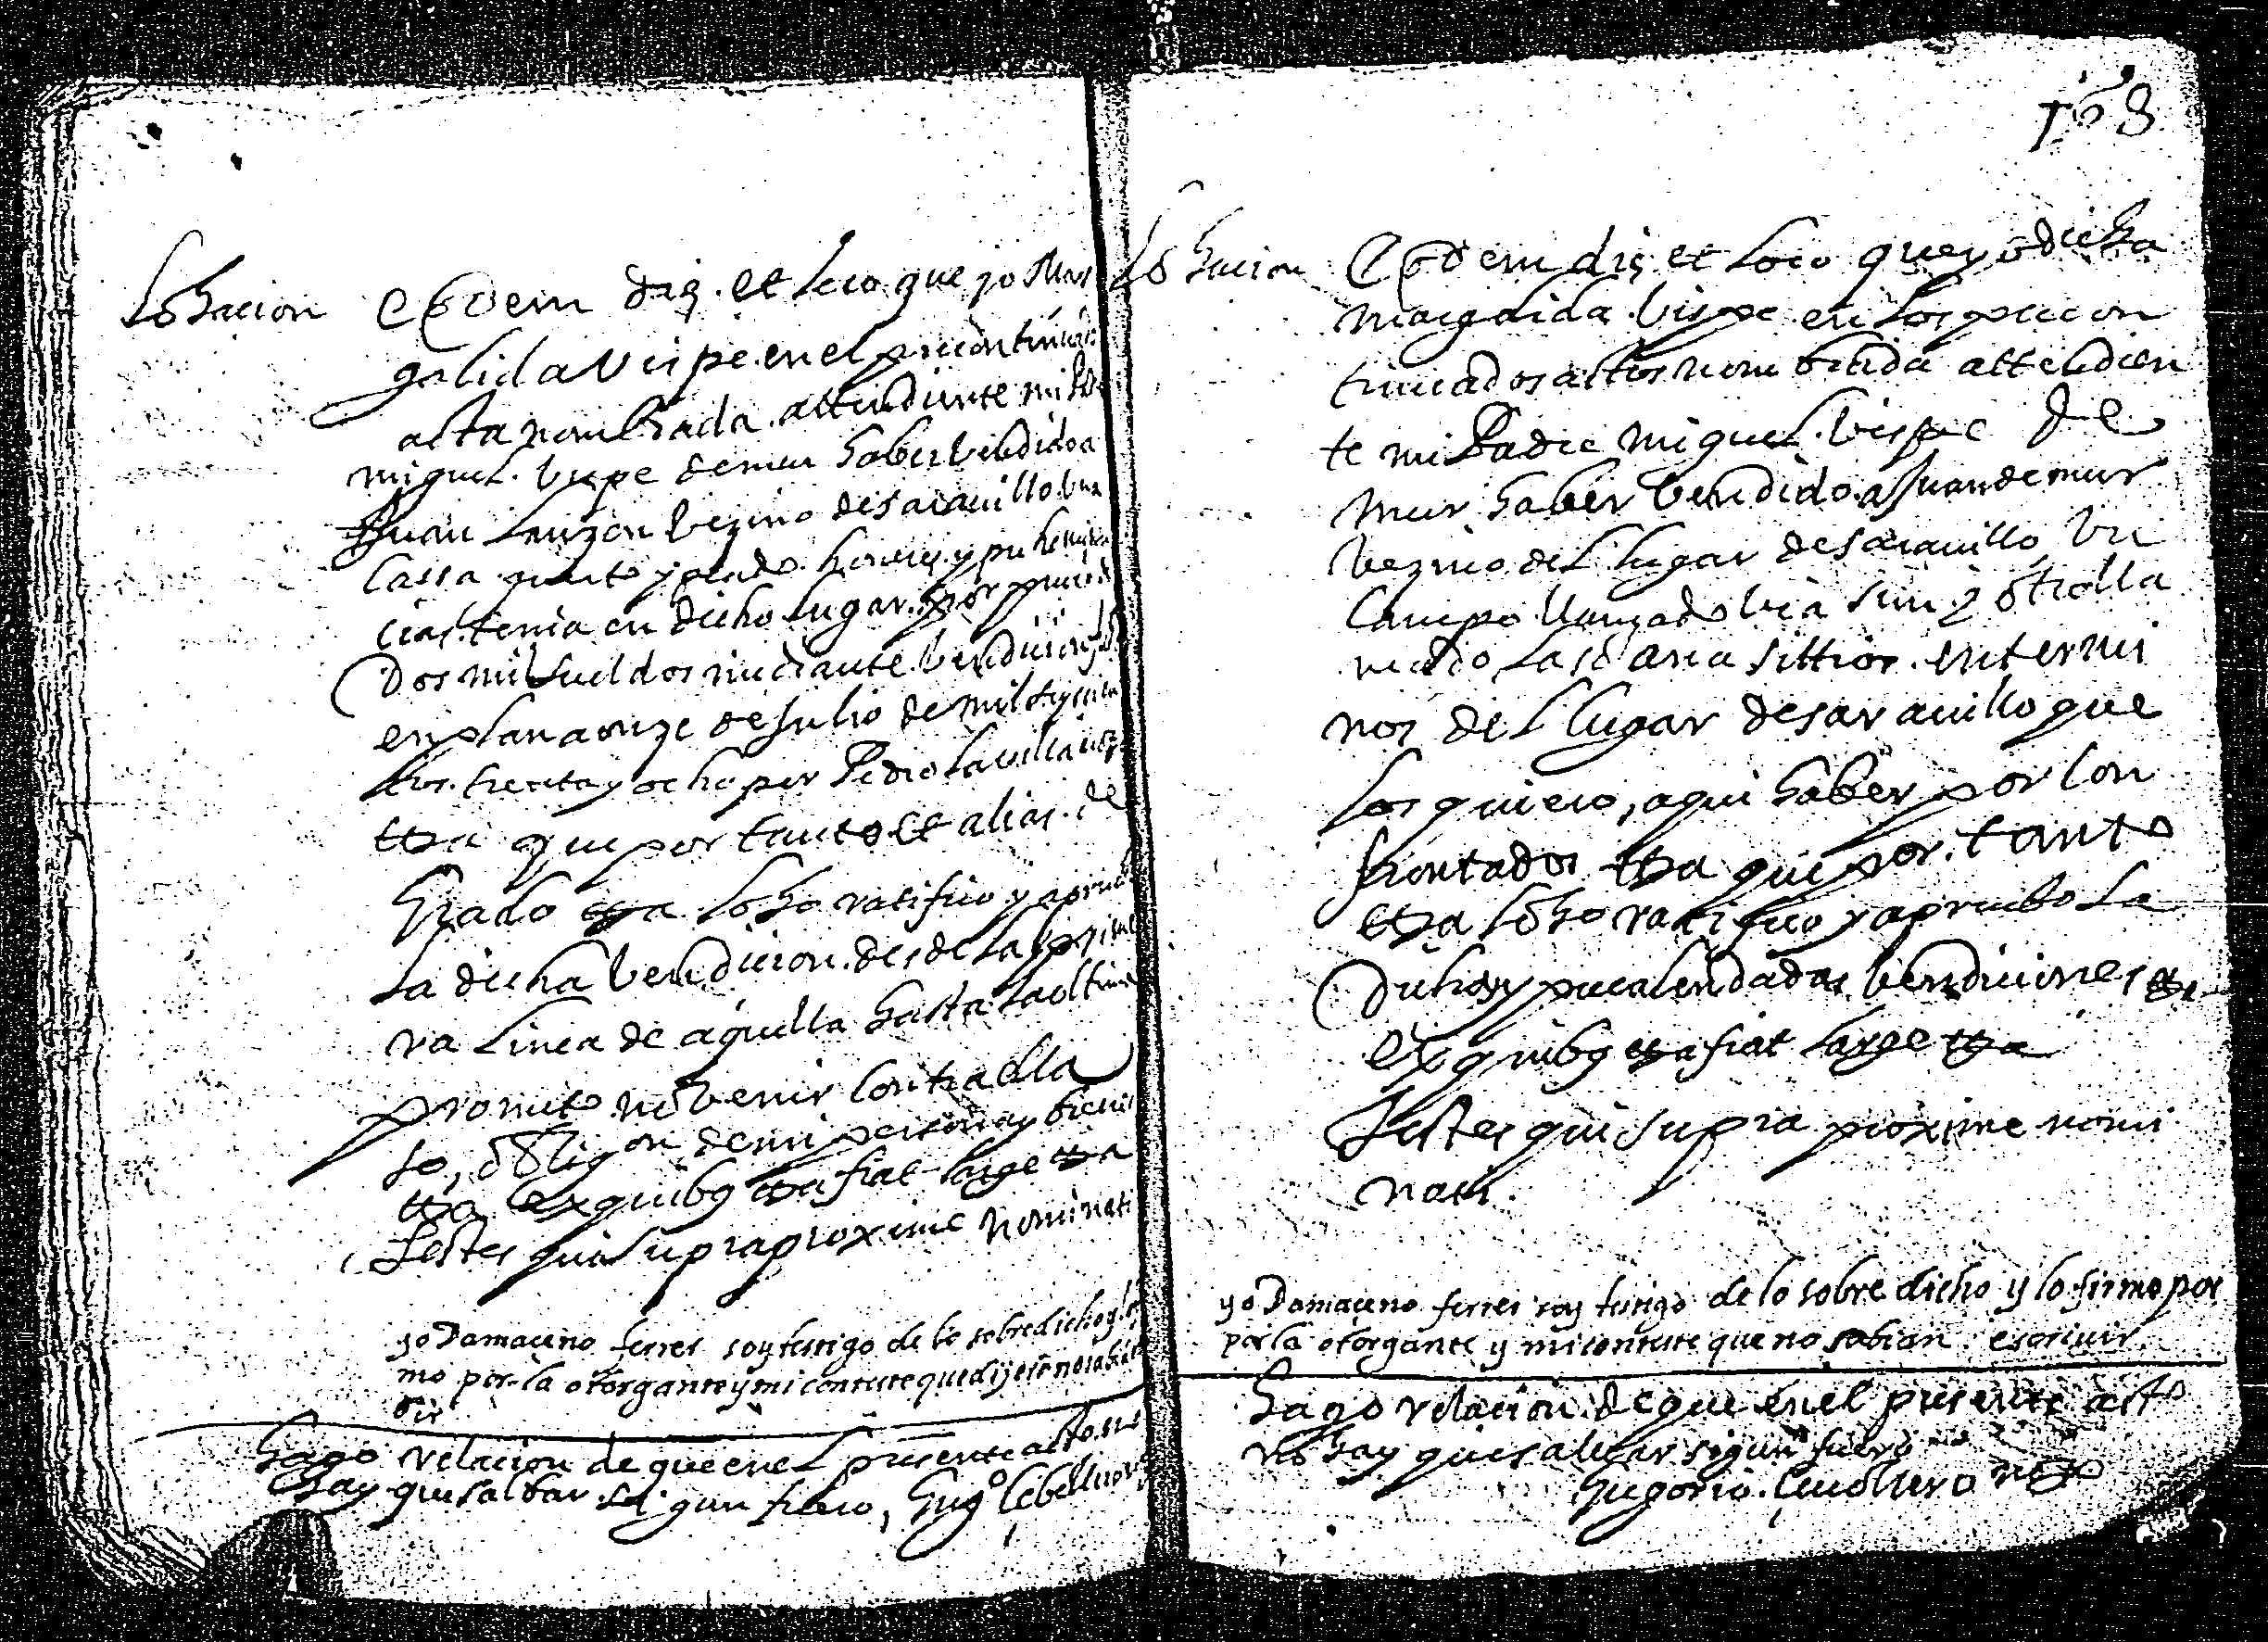 Lohacion Eodem die et loco que yo Mar
galida Vispe en el precontinuado
acto nombrada attendiente mi Padre
miguel Vispe de mur haber bendido a
Juan Lanzon bezino de sarauillo una
cassa guerto y prado
cias tenia en dicho lugar por precio de
Dos mil sueldos mediante bendicion
en plan a onze de Julio de mil y
tos treinta y ocho por Pedro Lavilla
etta que por tanto et alias de
Grado etta loho ratifico y apruebo
la dicha bendicion desde la prime
ra linea de aquella hasta la ultima
prometo no benir contra ella
so obligon de mi persona y bienes
etta ex quibus etta fiat large etta
Testes qui supra proxime nominati
yo Damaceno ferrer soy testigo de lo sobredicho y
mo por la otorgante y mi conteste que dijeron no
bir
Hago relacion de que en el presente acto no
hay que salbar segun fuero, Greg.o Cebollero
168
Lohacion Eodem die et loco que yo dicha
margalida Vispe en los precon
tinuados actos nombrada attendien
te mi Padre miguel Vispe de
mur haber bendido a Juan de mur
bezino del lugar de sarauillo un
campo llamado y otro lla
mado sittios en termi
nos del lugar de sarauillo que
los quiero aqui haber por con
frontados etta que por tanto
etta loho ratifico y apruebo la
Dichas y precalendadas bendiciones etta
ex quibus etta fiat large etta
Testes qui supra proxime nomi
nati.
yo Damaceno ferrer soy testigo de lo sobre dicho y lo firmo por
por la otorgante y mi conteste que no sabian escriuir
Hago relacion de que en el presente acto
no hay que saluar segun fuero
Gregorio Cebollero not